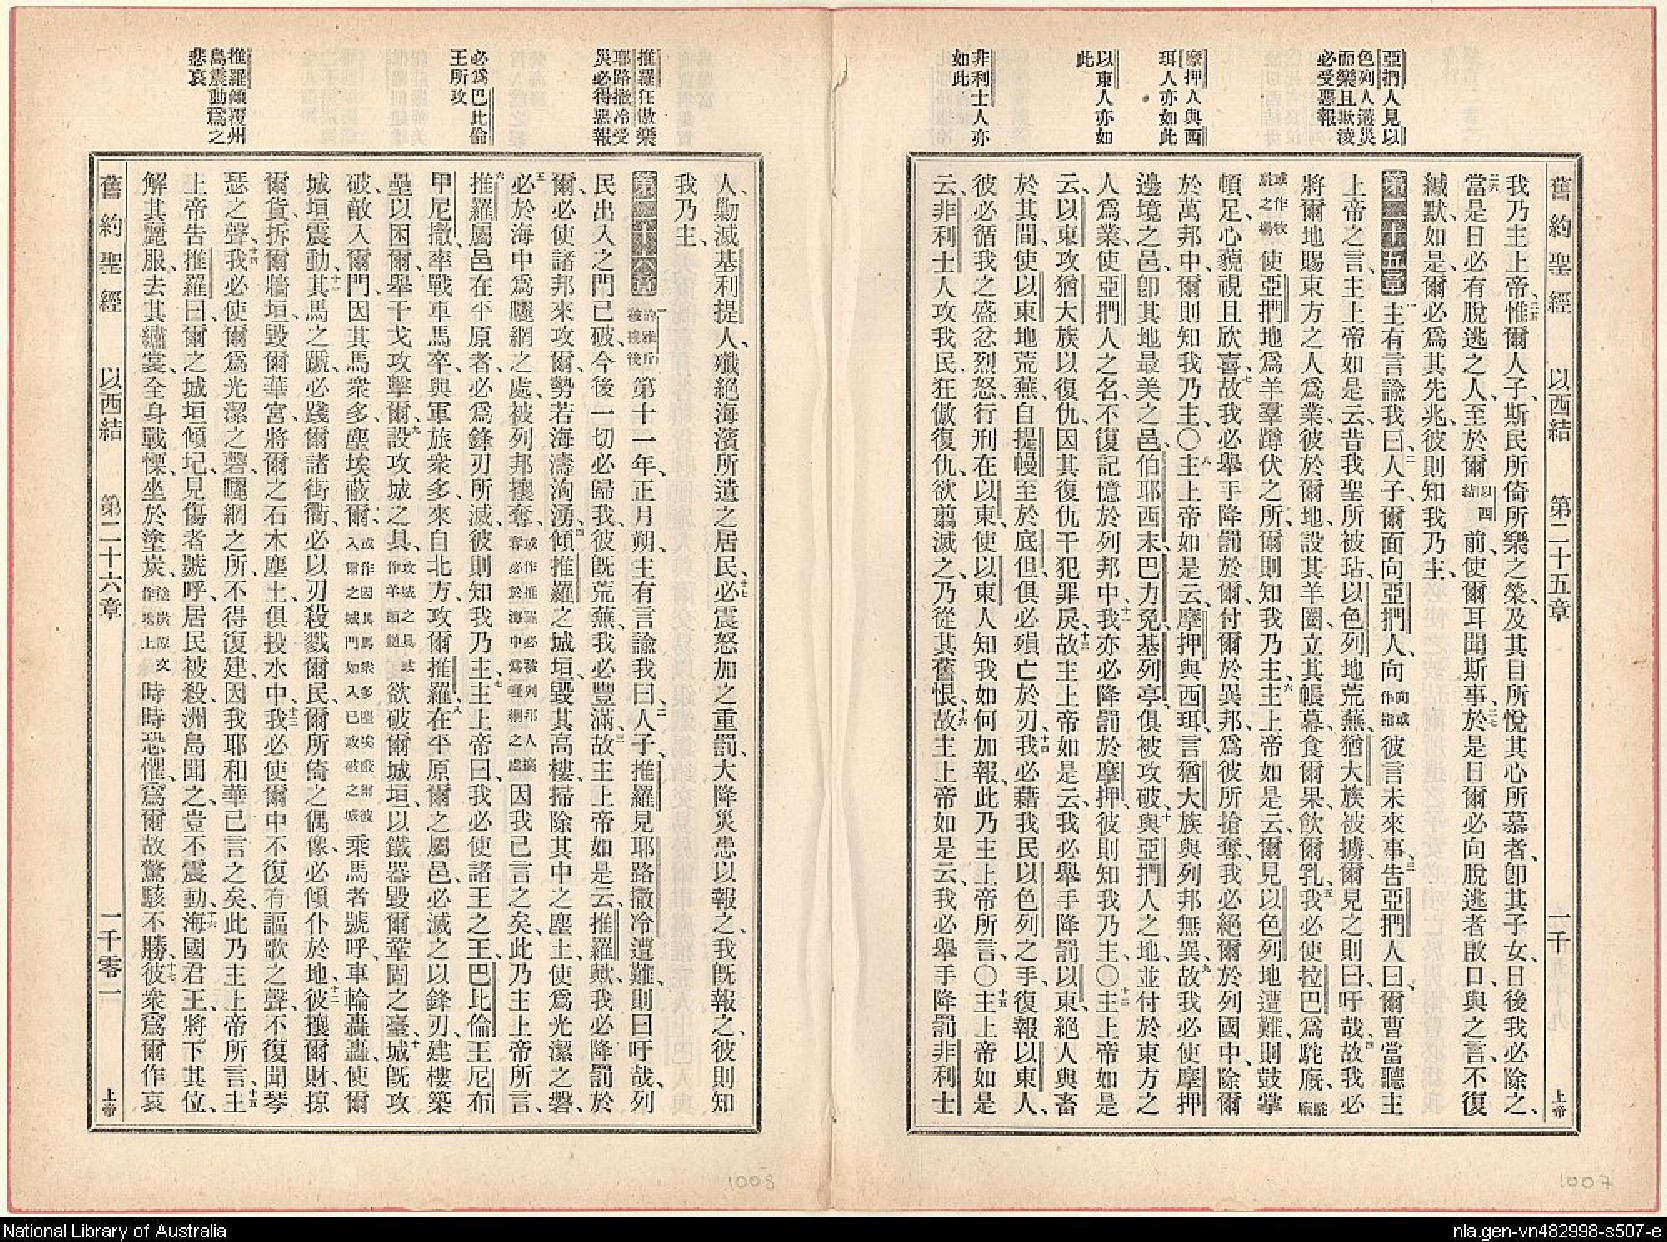 亞捫人見以
色列人遘災
而樂且欺凌
必受惡報
摩押人與西
珥人亦如此
以東人亦如
此
非利士人亦
如此
舊約聖經 以西結 第二十五章 一千 上帝
我乃主上帝、惟爾人子、斯民所倚所樂之榮、及其目所悅其心所慕者、卽其子女、日後我必除之、
當是日必有脫逃之人、至於爾以西結前、使爾耳聞斯事、於是日爾必向脫逃者啟口與之言、不復
緘默、如是、爾必爲其先兆、彼則知我乃主、
第二十五章 主有言諭我曰、人子、爾面向亞捫人、向向或作指彼言未來事、告亞捫人曰、爾曹當聽主
上帝之言、主上帝如是云、昔我聖所被玷、以色列地荒蕪、猶大族被擄、爾見之則曰、吁哉、故我必
將爾地賜東方之人爲業、彼於爾地設其羊圈、立其帳幕、食爾果、飲爾乳、我必使拉巴爲駝廐、
使亞捫地爲羊羣蹲伏之所、爾則知我乃主、主上帝如是云、爾見以色列地遭難、則鼓掌
頓足、心藐視且欣喜、故我必舉手降罰於爾、付爾於異邦、爲彼所搶奪、我必絕爾於列國中、除爾
於萬邦中、爾則知我乃主、〇主上帝如是云、摩押與西珥言、猶大族與列邦無異、故我必使摩押
邊境之邑、卽其地最美之邑、伯耶西末、巴力免、基列亭、俱被攻破、與亞捫人之地、並付於東方之
人爲業、使亞捫人之名、不復記憶於列邦中、我亦必降罰於摩押、彼則知我乃主、〇主上帝如是
云、以東攻猶大族以復仇、因其復仇干犯罪戾、故主上帝如是云、我必舉手降罰以東、絕人與畜
於其間、使以東地荒蕪、自提幔至於底但、俱必殞亡於刃、我必藉我民以色列之手、復報以東人、
彼必循我之盛忿烈怒、行刑在以東、使以東人知我如何加報、此乃主上帝所言、〇主上帝如是
云、非利士人攻我民、狂傲復仇、欲翦滅之、乃從其舊恨、故主上帝如是云、我必舉手降罰非利士
推羅狂傲樂
耶路撒冷受
災必得惡報
必爲巴比倫
王所攻
推羅傾覆州
島震動爲之
悲哀
人、勦滅基利提人、殲絕海濱所遺之居民、必震怒加之重罰、大降災患以報之、我旣報之、彼則知
我乃主、
第二十六章 第十一年、正月朔、主有言諭我曰、人子、推羅見耶路撒冷遭難、則曰吁哉、列
民出入之門已破、今後一切必歸我、彼旣荒蕪、我必豐滿、故主上帝如是云、推羅歟、我必降罰於
爾、必使諸邦來攻爾、勢若海濤洶湧、傾推羅之城垣、毀其高樓、掃除其中之塵土、使爲光潔之磐、
必於海中爲曬網之處、被列邦攘奪、攘奪必於海中爲曬網之處或作推羅必被列邦人擄因我已言之矣、此乃主上帝所言、
推羅屬邑在平原者、必爲鋒刃所滅、彼則知我乃主、主上帝曰、我必使諸王之王、巴比倫王尼布
甲尼撒、率戰車馬卒、與軍旅衆多、來自北方、攻爾推羅、在平原爾之屬邑、必滅之以鋒刃、建樓築
壘以困爾、舉干戈攻擊爾、設攻城之具、欲破爾城垣、以鐵器毀爾鞏固之臺、城旣攻
破、敵入爾門、因其馬衆多、塵埃蔽爾、乘馬者號呼、車輪轟轟、使爾
城垣震動、其馬之蹏、必踐爾諸街衢、必以刃殺戮爾民、爾所倚之偶像、必傾仆於地、彼攘爾財、掠
爾貨、拆爾牆垣、毀爾華宮、將爾之石木塵土、俱投水中、我必使爾中不復有謳歌之聲、不復聞琴
瑟之聲、我必使爾爲光潔之磐、曬網之所、不得復建、因我耶和華已言之矣、此乃主上帝所言、主
上帝告推羅曰、爾之城垣傾圮、見傷者號呼、居民被殺、洲島聞之豈不震動、海國君王、將下其位、
解其麗服、去其繡裳、全身戰慄、坐於塗炭、時時恐懼、爲爾故驚駭不勝、彼衆爲爾作哀
舊約聖經 以西結 第二十六章 一千零一 上帝
1008
1007
National Library of Australia
nla.gen-vn482998-s507-e